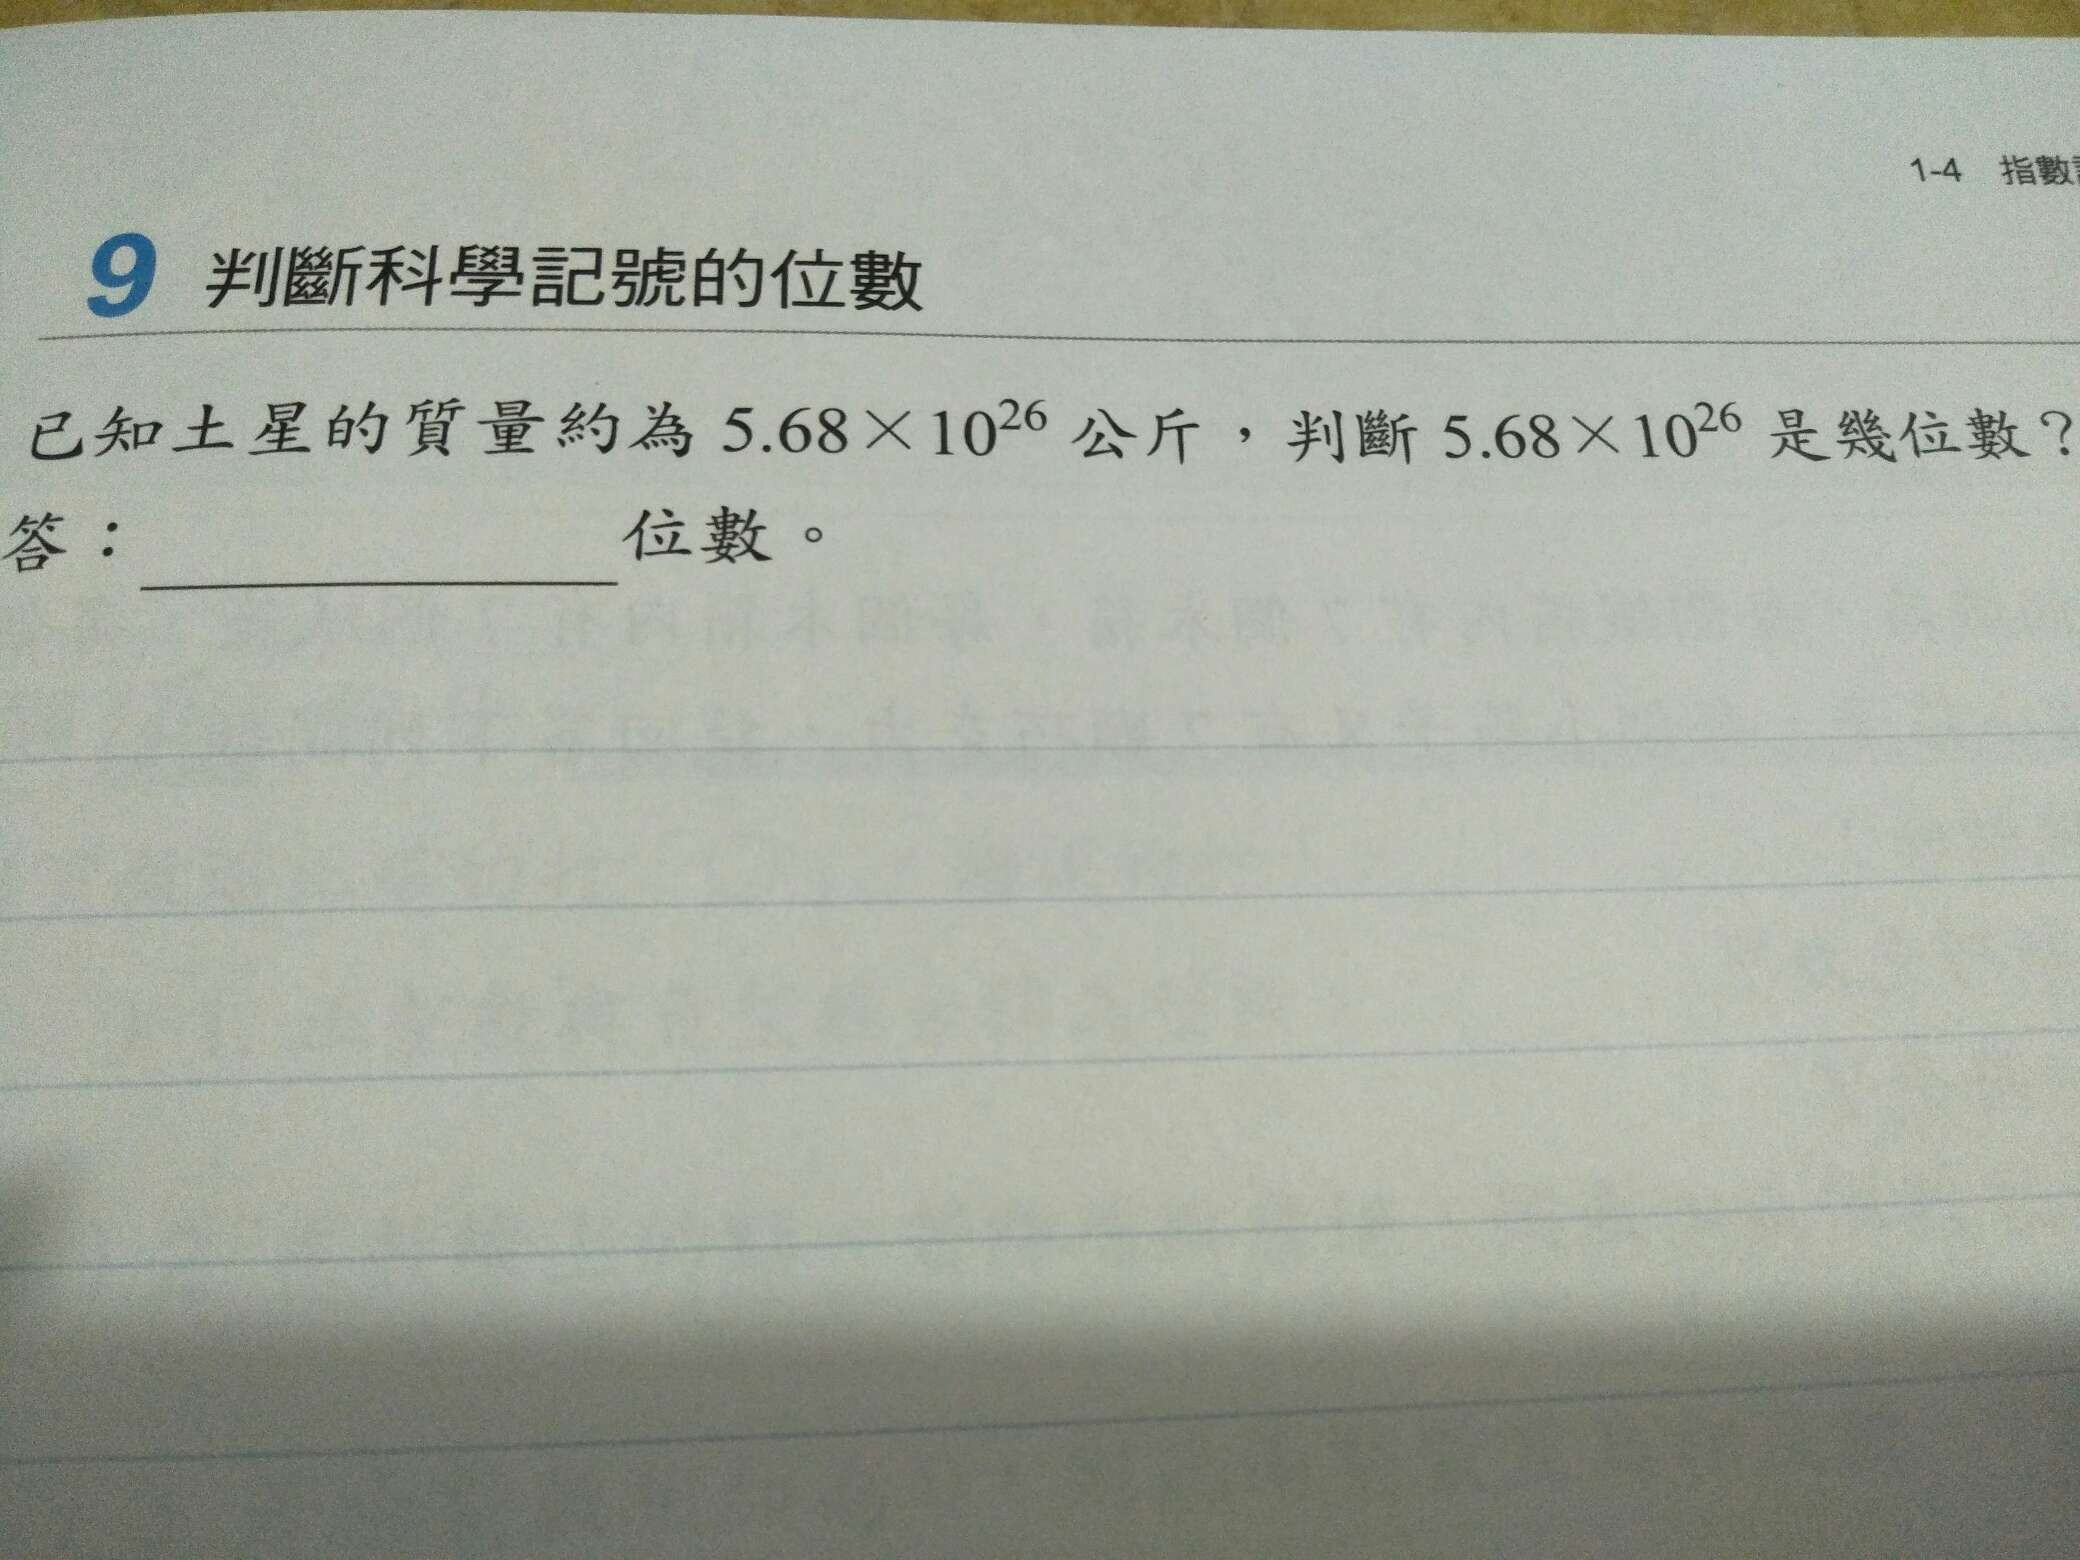 1-4 指數
9 判斷科學記號的位數
已知土星的質量約為 5.68×10²⁶ 公斤，判斷 5.68×10²⁶ 是幾位數？
答：＿＿＿＿＿＿位數。